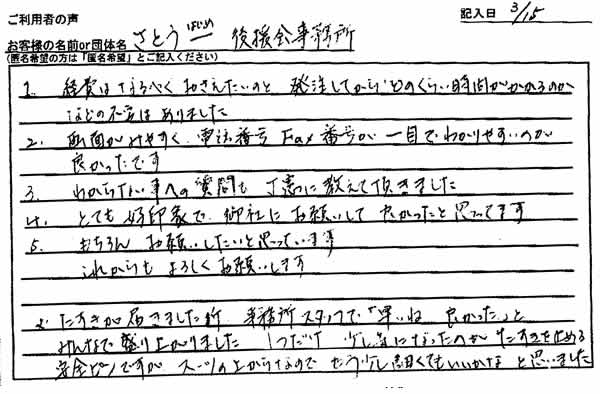 ご利用者の声
記入日 3/15
お客様の名前or団体名 さとうはじめ 後援会事務所
(匿名希望の方は「匿名希望」とご記入ください)
1. 経費はなるべくおさえたいのと 発注してからどのくらい時間がかかるのか
などの不安はありました
2. 画面がみやすく、電話番号 Fax番号が一目でわかりやすいのが
良かったです
3. わからない事への質問も丁寧に教えて頂きました
4. とても好印象で 御社にお願いして良かったと思ってます
5. もちろん お願いしたいと思っています
これからもよろしくお願いします
たすきが届きました所 事務所スタッフで「早いね 良かった」と
みんなで盛り上がりました 1つだけ 少し気になったのが たすきを止める
安全ピンですが スーツの上からなので もう少し細くてもいいかなと思いました